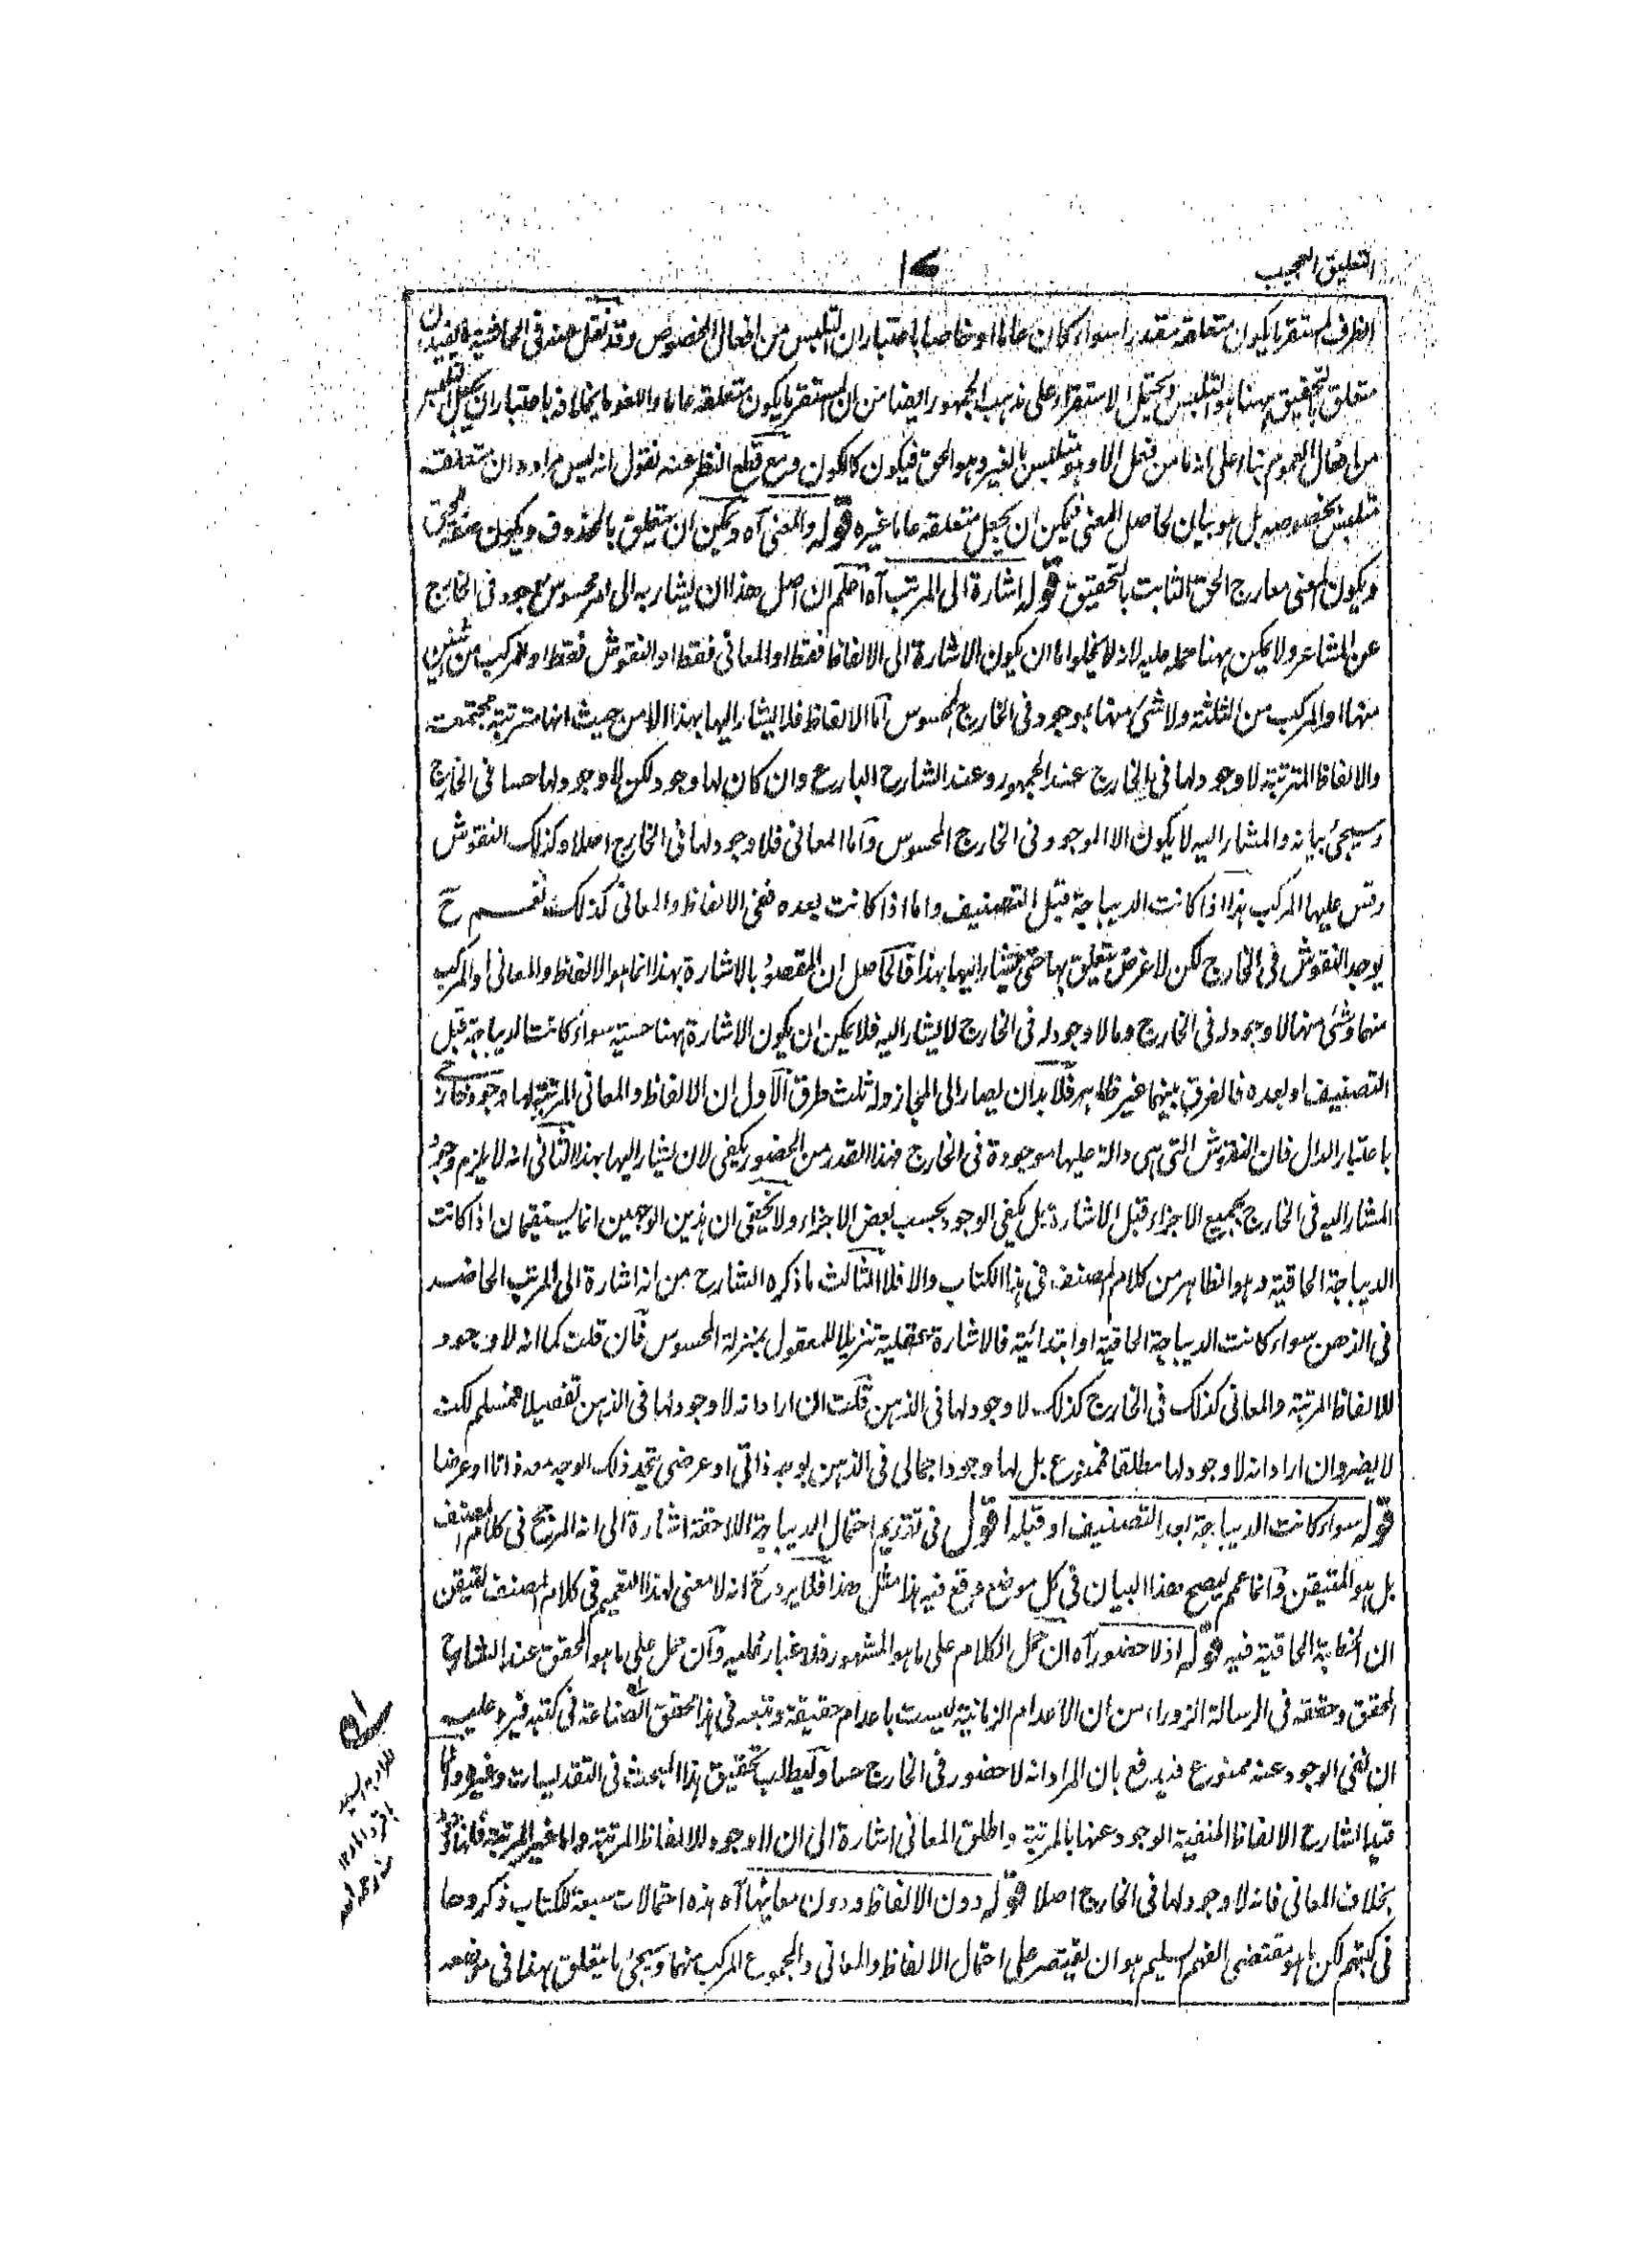 التعليق العجيب
١٤
الظرف المستقر ما يكون متعلقه مقدرا سواء كان عاما او خاصا باعتبار ان التلبس من افعال الخصوص وقد نقل عنه فى الحاشية ما يفيد ان
متعلق بالتحقيق ههنا هو التلبس ويحتمل الاستقرار على مذهب الجمهور ايضا من ان المستقر ما يكون متعلقه عاما واللغو ما يخالفه باعتبار ان يجعل التلبس
من افعال العموم بناء على انه ما من فعل الا وهو متلبس بالغير وهو الحق فيكون كالكون ومع قطع النظر عنه نقول انه ليس مراده ان متعلقه
متلبس بخصوصه بل هو بيان لحاصل المعنى فيمكن ان يجعل متعلقه عاما غيره قوله والمعنى آه ويمكن ان يتعلق بالمحذوف ويكون صفة للحق
ويكون المعنى معارج الحق الثابت بالتحقيق قوله اشارة الى المرتب آه اعلم ان اصل هذا ان يشار به الى امر محسوس موجود فى الخارج
عن المشاعر ولا يمكن ههنا حمله عليه لانه لا يخلو اما ان يكون الاشارة الى الالفاظ فقط او المعانى فقط او النقوش فقط او المركب من شيئين
منهما او المركب من الثلثة ولا شئ منها بموجود فى الخارج المحسوس اما الالفاظ فلا يشار اليها بهذا الا من حيث انها مترتبة مجتمعة
والالفاظ المترتبة لا وجود لها فى الخارج عند الجمهور وعند الشارح البارع وان كان لها وجود لكن لا وجود لها حسا فى الخارج
وسيجئ بيانه والمشار اليه لا يكون الا الموجود فى الخارج المحسوس واما المعانى فلا وجود لها فى الخارج اصلا وكذلك النقوش
وقس عليها المركب هذا اذا كانت الديباجة قبل التصنيف واما اذا كانت بعده ففى الالفاظ والمعانى كذلك نعم ح
يوجد النقوش فى الخارج لكن لا غرض يتعلق بها حتى يشار اليها بهذا فالحاصل ان المقصود بالاشارة بهذا انما هو الالفاظ والمعانى او المركب
منهما وشئ منهما لا وجود له فى الخارج وما لا وجود له فى الخارج لا يشار اليه فلا يمكن ان يكون الاشارة ههنا حسية سواء كانت الديباجة قبل
التصنيف او بعده فالفرق بينهما غير ظاهر فلا بد ان يصار الى المجاز وله ثلث طرق الاول ان الالفاظ والمعانى المرتبة لها وجود خارجى
باعتبار الدال فان النقوش التى هى دالة عليها موجودة فى الخارج فهذا القدر من الحضور يكفى لان يشار اليها بهذا الثانى انه لا يلزم وجود
المشار اليه فى الخارج بجميع الاجزاء قبل الاشارة بل يكفى الوجود بحسب بعض الاجزاء ولا يخفى ان هذين الوجهين انما يستقيمان اذا كانت
الديباجة الحاقية وهو الظاهر من كلام المصنف فى هذا الكتاب والا فلا الثالث ما ذكره الشارح من انه اشارة الى المرتب الحاضر
فى الذهن سواء كانت الديباجة الحاقية او ابتدائية فالاشارة عقلية تنزيلا للمعقول بمنزلة المحسوس فان قلت كما انه لا وجود
للالفاظ المرتبة والمعانى كذلك فى الخارج كذلك لا وجود لها فى الذهن قلت ان اراد انه لا وجود لها فى الذهن تفصيلا فمسلم لكنه
لا يضر وان اراد انه لا وجود لها مطلقا فممنوع بل لها وجود اجمالى فى الذهن بوجه ذاتى او عرضى يتحد ذلك الوجه معه ذاتا او عرضا
قوله سواء كانت الديباجة بعد التصنيف او قبله اقول فى تقديم احتمال الديباجة اللاحقة اشارة الى انه المرجح فى كلام المصنف
بل هو المتيقن وانما عمم ليصح هذا البيان فى كل موضع وقع فيه هذا مثل هذا فلا يرد ح انه لا معنى لهذا التعميم فى كلام المصنف لتيقن
ان الخطبة الحاقية فيه قوله اذ لا حضور آه ان حمل الكلام على ما هو المشهور فلا غبار عليه وان حمل على ما هو المحقق عند الشارح
المحقق وحققه فى الرسالة الزوراء من ان الاعدام الزمانية ليست باعدام حقيقة وتبعه فى هذا محقق الصناعة فى كتبه فيرد عليه
ان نفى الوجود عنه ممنوع فيدفع بان المراد انه لا حضور فى الخارج حسا وليطلب تحقيق هذا البحث فى التقديسات وغيره وانما
قيد الشارح الالفاظ المنفية الوجود عنها بالمرتبة واطلق المعانى اشارة الى ان لا وجود للالفاظ المرتبة واما غير المرتبة
بخلاف المعانى فانه لا وجود لها فى الخارج اصلا قوله دون الالفاظ ودون معانيها آه هذه احتمالات سبعة للكتاب ذكروها
فى كتبهم لكن ما هو مقتضى الفهم السليم هو ان يقتصر على احتمال الالفاظ والمعانى والمجموع المركب منهما وسيجئ ما يتعلق بهذا فى موضعه
السيد
باقر داماد ١٢
منه رحمه الله